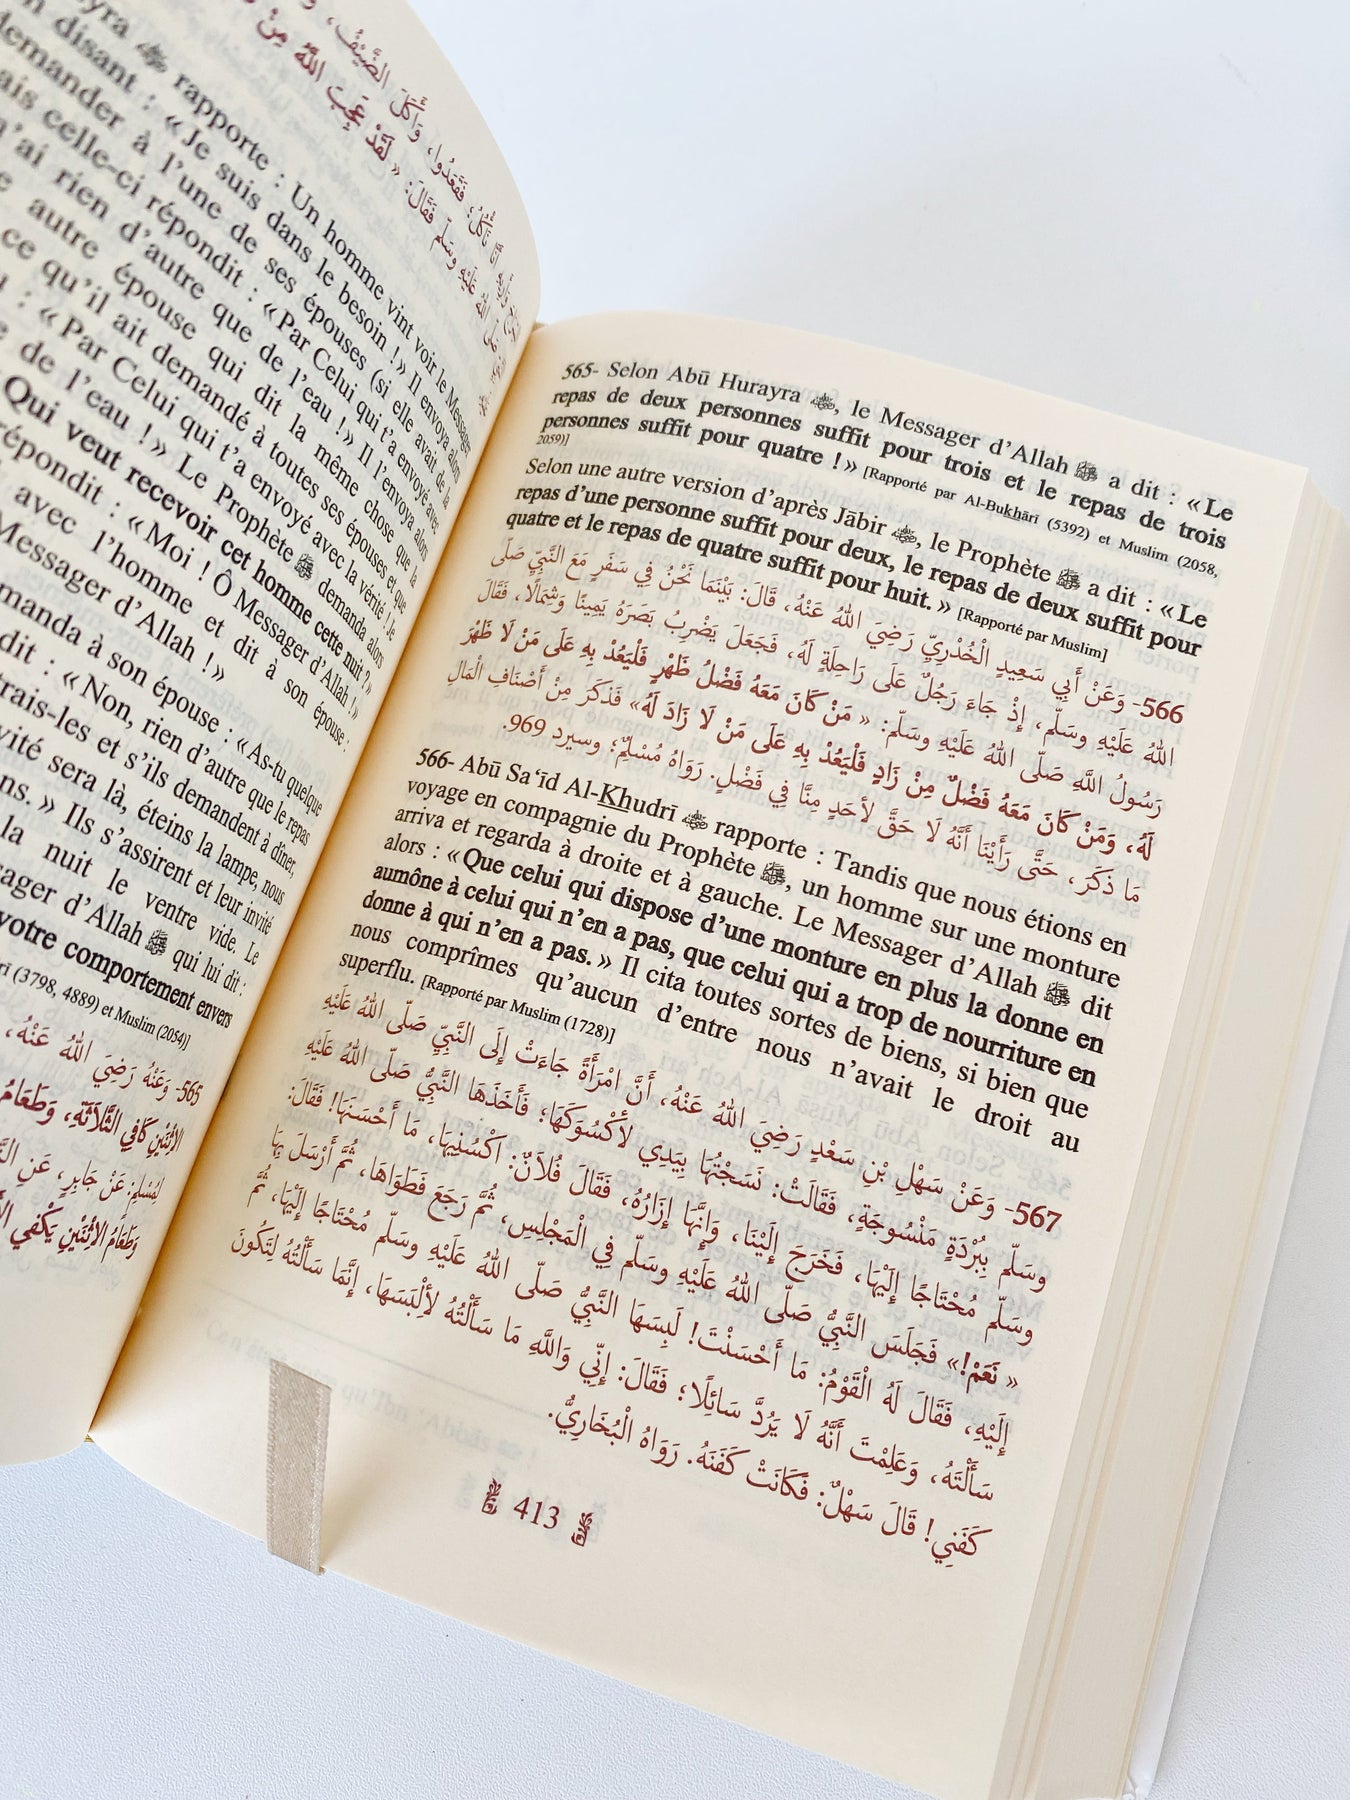 وَأَكَلَ الضَّيْفُ،
أَنَّا نَأْكُلُ؛ فَقَعَدُوا،
عَلَيْهِ وَسَلَّم فَقَالَ: «لَقَدْ عَجِبَ اللَّهُ مِنْ
rapporte : Un homme vint voir le Messager
disant : « Je suis dans le besoin ! » Il envoya alors
demander à l'une de ses épouses (si elle avait de la
ais celle-ci répondit : « Par Celui qui t'a envoyé avec
'ai rien d'autre que de l'eau ! » Il l'envoya alors
autre épouse qui dit la même chose que la
ce qu'il ait demandé à toutes ses épouses et que
: « Par Celui qui t'a envoyé avec la vérité ! Je
de l'eau ! » Le Prophète ﷺ demanda alors
Qui veut recevoir cet homme cette nuit ? »
répondit : « Moi ! Ô Messager d'Allah ! »
avec l'homme et dit à son épouse :
Messager d'Allah ! »
manda à son épouse : « As-tu quelque
dit : « Non, rien d'autre que le repas
trais-les et s'ils demandent à dîner,
vité sera là, éteins la lampe, nous
ns. » Ils s'assirent et leur invité
la nuit le ventre vide. Le
ager d'Allah ﷺ qui lui dit :
votre comportement envers
(3798, 4889) et Muslim (2054)]
565- وَعَنْهُ رَضِيَ اللهُ عَنْهُ،
الاثْنَيْنِ كَافِي الثَّلَاثَةِ، وَطَعَامُ
لِمُسْلِمٍ: عَنْ جَابِرٍ، عَنِ
وَطَعَامُ الاثْنَيْنِ يَكْفِي
565- Selon Abū Hurayra , le Messager d'Allah ﷺ a dit : « Le
repas de deux personnes suffit pour trois et le repas de trois
personnes suffit pour quatre ! » [Rapporté par Al-Bukhārī (5392) et Muslim (2058,
2059)]
Selon une autre version d'après Jābir , le Prophète ﷺ a dit : « Le
repas d'une personne suffit pour deux, le repas de deux suffit pour
quatre et le repas de quatre suffit pour huit. » [Rapporté par Muslim]
566- وَعَنْ أَبِي سَعِيدٍ الْخُدْرِيِّ رَضِيَ اللهُ عَنْهُ، قَالَ: بَيْنَمَا نَحْنُ فِي سَفَرٍ مَعَ النَّبِيِّ صَلَّى
اللهُ عَلَيْهِ وَسَلَّم، إِذْ جَاءَ رَجُلٌ عَلَى رَاحِلَةٍ لَهُ، فَجَعَلَ يَضْرِبُ بَصَرَهُ يَمِينًا وَشِمَالًا، فَقَالَ
رَسُولُ اللَّهِ صَلَّى اللهُ عَلَيْهِ وَسَلَّم: «مَنْ كَانَ مَعَهُ فَضْلُ ظَهْرٍ فَلْيَعُدْ بِهِ عَلَى مَنْ لَا ظَهْرَ
لَهُ، وَمَنْ كَانَ مَعَهُ فَضْلٌ مِنْ زَادٍ فَلْيَعُدْ بِهِ عَلَى مَنْ لَا زَادَ لَهُ» فَذَكَرَ مِنْ أَصْنَافِ الْمَالِ
مَا ذَكَرَ، حَتَّى رَأَيْنَا أَنَّهُ لَا حَقَّ لأَحَدٍ مِنَّا فِي فَضْلٍ. رَوَاهُ مُسْلِمٌ؛ وسيرد 969.
566- Abū Sa'īd Al-Khudrī rapporte : Tandis que nous étions en
voyage en compagnie du Prophète ﷺ, un homme sur une monture
arriva et regarda à droite et à gauche. Le Messager d'Allah ﷺ dit
alors : « Que celui qui dispose d'une monture en plus la donne en
aumône à celui qui n'en a pas, que celui qui a trop de nourriture en
donne à qui n'en a pas. » Il cita toutes sortes de biens, si bien que
nous comprîmes qu'aucun d'entre nous n'avait le droit au
superflu. [Rapporté par Muslim (1728)]
567- وَعَنْ سَهْلِ بْنِ سَعْدٍ رَضِيَ اللهُ عَنْهُ، أَنَّ امْرَأَةً جَاءَتْ إِلَى النَّبِيِّ صَلَّى اللهُ عَلَيْهِ
وسَلَّم بِبُرْدَةٍ مَنْسُوجَةٍ، فَقَالَتْ: نَسَجْتُهَا بِيَدِي لأَكْسُوَكَهَا؛ فَأَخَذَهَا النَّبِيُّ صَلَّى اللهُ عَلَيْهِ
وسَلَّم مُحْتَاجًا إِلَيْهَا، فَخَرَجَ إِلَيْنَا، وَإِنَّهَا إِزَارُهُ، فَقَالَ فُلَانٌ: اكْسُنِيهَا، مَا أَحْسَنَهَا! فَقَالَ:
«نَعَمْ!» فَجَلَسَ النَّبِيُّ صَلَّى اللهُ عَلَيْهِ وسَلَّم فِي الْمَجْلِسِ؛ ثُمَّ رَجَعَ فَطَوَاهَا، ثُمَّ أَرْسَلَ بِهَا
إِلَيْهِ، فَقَالَ لَهُ الْقَوْمُ: مَا أَحْسَنْتَ! لَبِسَهَا النَّبِيُّ صَلَّى اللهُ عَلَيْهِ وسَلَّم مُحْتَاجًا إِلَيْهَا، ثُمَّ
سَأَلْتَهُ، وَعَلِمْتَ أَنَّهُ لَا يَرُدَّ سَائِلًا؛ فَقَالَ: إِنِّي وَاللَّهِ مَا سَأَلْتُهُ لأَلْبَسَهَا، إِنَّمَا سَأَلْتُهُ لِتَكُونَ
كَفَنِي! قَالَ سَهْلٌ: فَكَانَتْ كَفَنَهُ. رَوَاهُ الْبُخَارِيُّ.
413